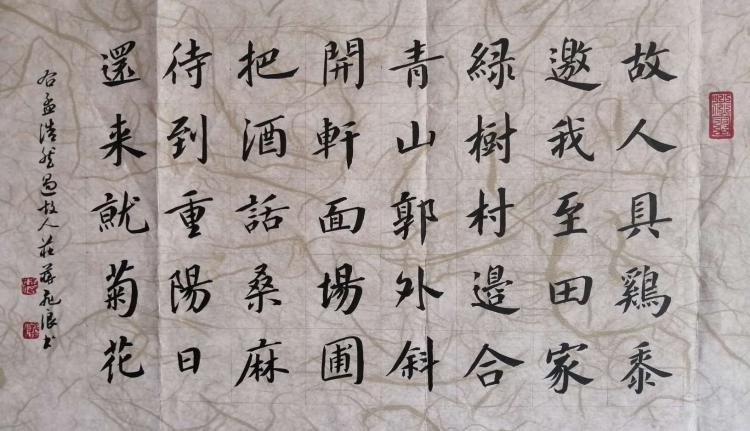 故人具鷄黍
邀我至田家
緑樹村邉合
青山郭外斜
開軒面場圃
把酒話桑麻
待到重陽日
還来就菊花
孟浩然過故人莊蔣 書